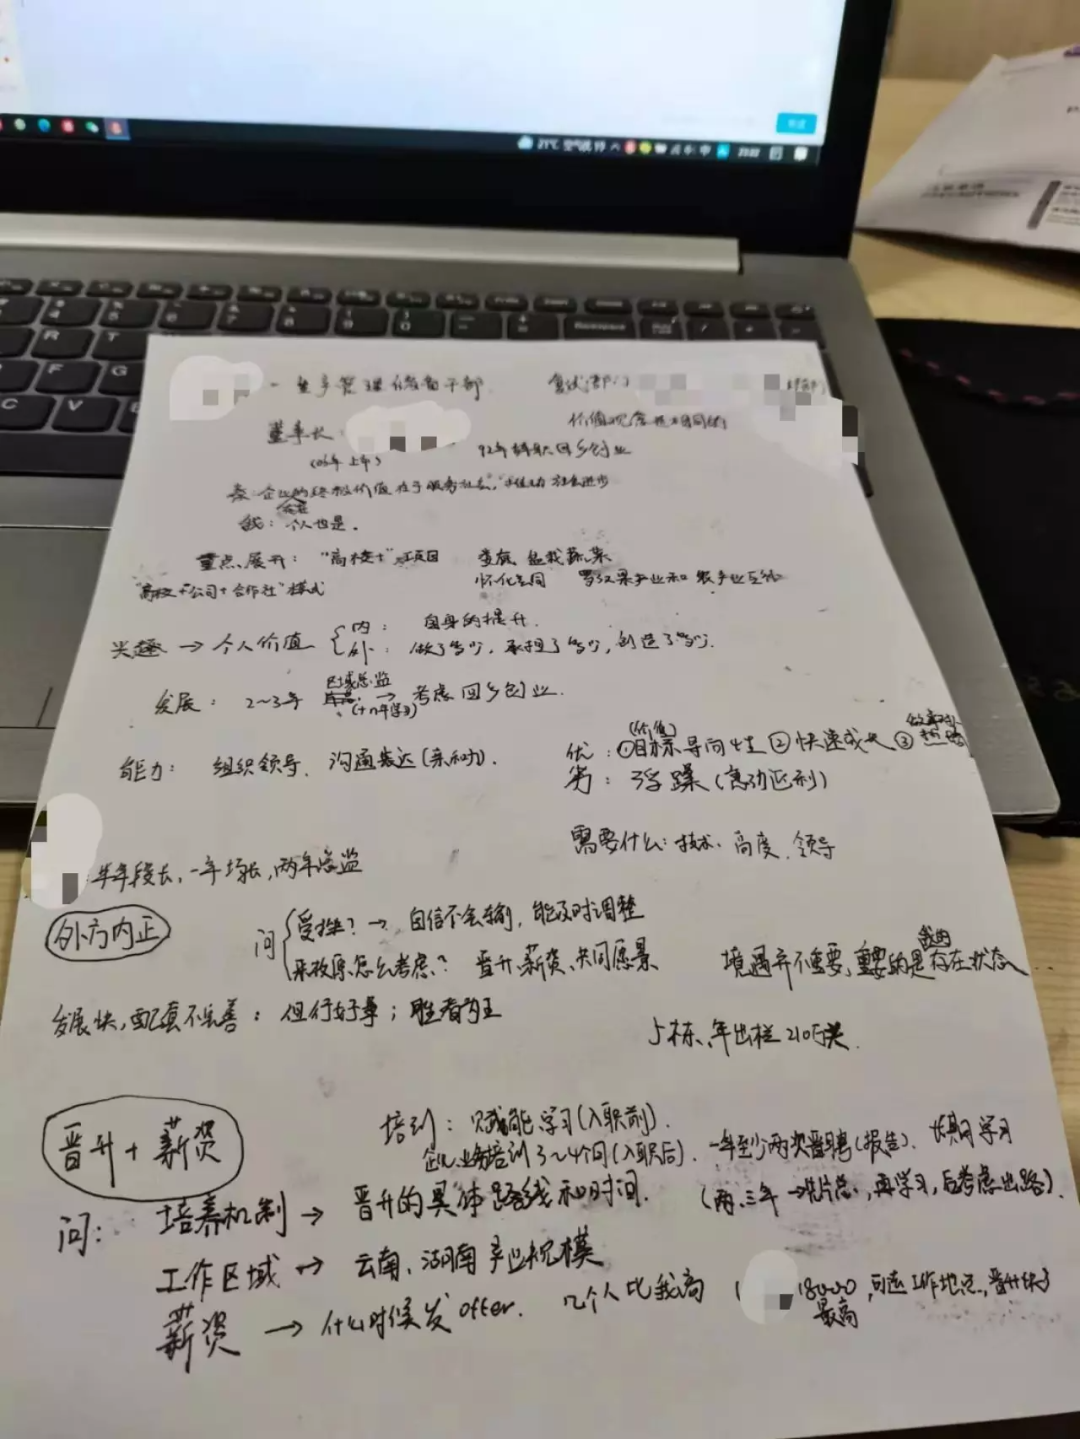 21℃ 空气优
23:02
生产管理储备干部
复试(部门
董事长:
价值观念
92年辞职回乡创业
(06年上市)
秦:企业的终极价值在于服务社会,
我:个人也是.
重点、展开:"高校+"项目
"高校+公司+合作社"模式
怀化
兴趣 → 个人价值 { 内: 自身的提升.
外: 做了多少,承担了多少,创造了多少.
发展: 2~3年 区域总监 → 考虑回乡创业.
能力: 组织领导、沟通表达(亲和力).
优:①目标导向性 (价值) ②快速成长 ③
劣: 浮躁(急功近利)
需要什么: 技术、高度、领导
半年段长,一年场长,两年总监
外方内正
问 { 受挫? → 自信不会输,能及时调整
来牧原怎么考虑? 晋升、薪资、共同愿景
境遇并不重要,重要的是我的存在状态
发展快,配套不完善: 但行好事; 胜者为王
5栋、年出栏210万头.
晋升+薪资
培训: 赋能学习(入职前).
企业培训3~4个月(入职后). 一年至少两次晋聘(报告). 长期学习
问: 培养机制 → 晋升的具体路线和时间.
(两、三年→片总,再学习,后考虑出路).
工作区域 → 云南、湖南产业规模
薪资 → 什么时候发offer. 几个人比我高
最高
工作地点,晋升快了